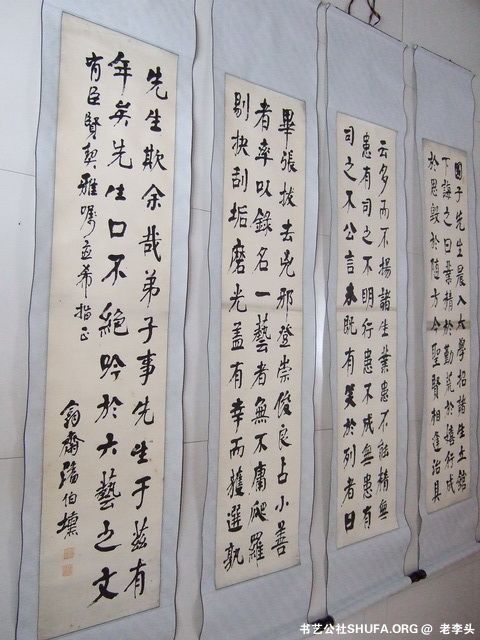 國子先生晨入太學招諸生立館
下誨之曰業精於勤荒於嬉行成
於思毀於隨方今聖賢相逢治具
云多而不揚諸生業患不能精無
患有司之不明行患不成無患有
司之不公言未既有笑於列者曰
畢張拔去兇邪登崇俊良占小善
者率以錄名一藝者無不庸爬羅
剔抉刮垢磨光蓋有幸而獲選孰
先生欺余哉弟子事先生于茲有
年矣先生口不絕吟於六藝之文
有臣賢契雅囑並希指正
齋潘伯
书艺公社SHUFA.ORG @ 老李头